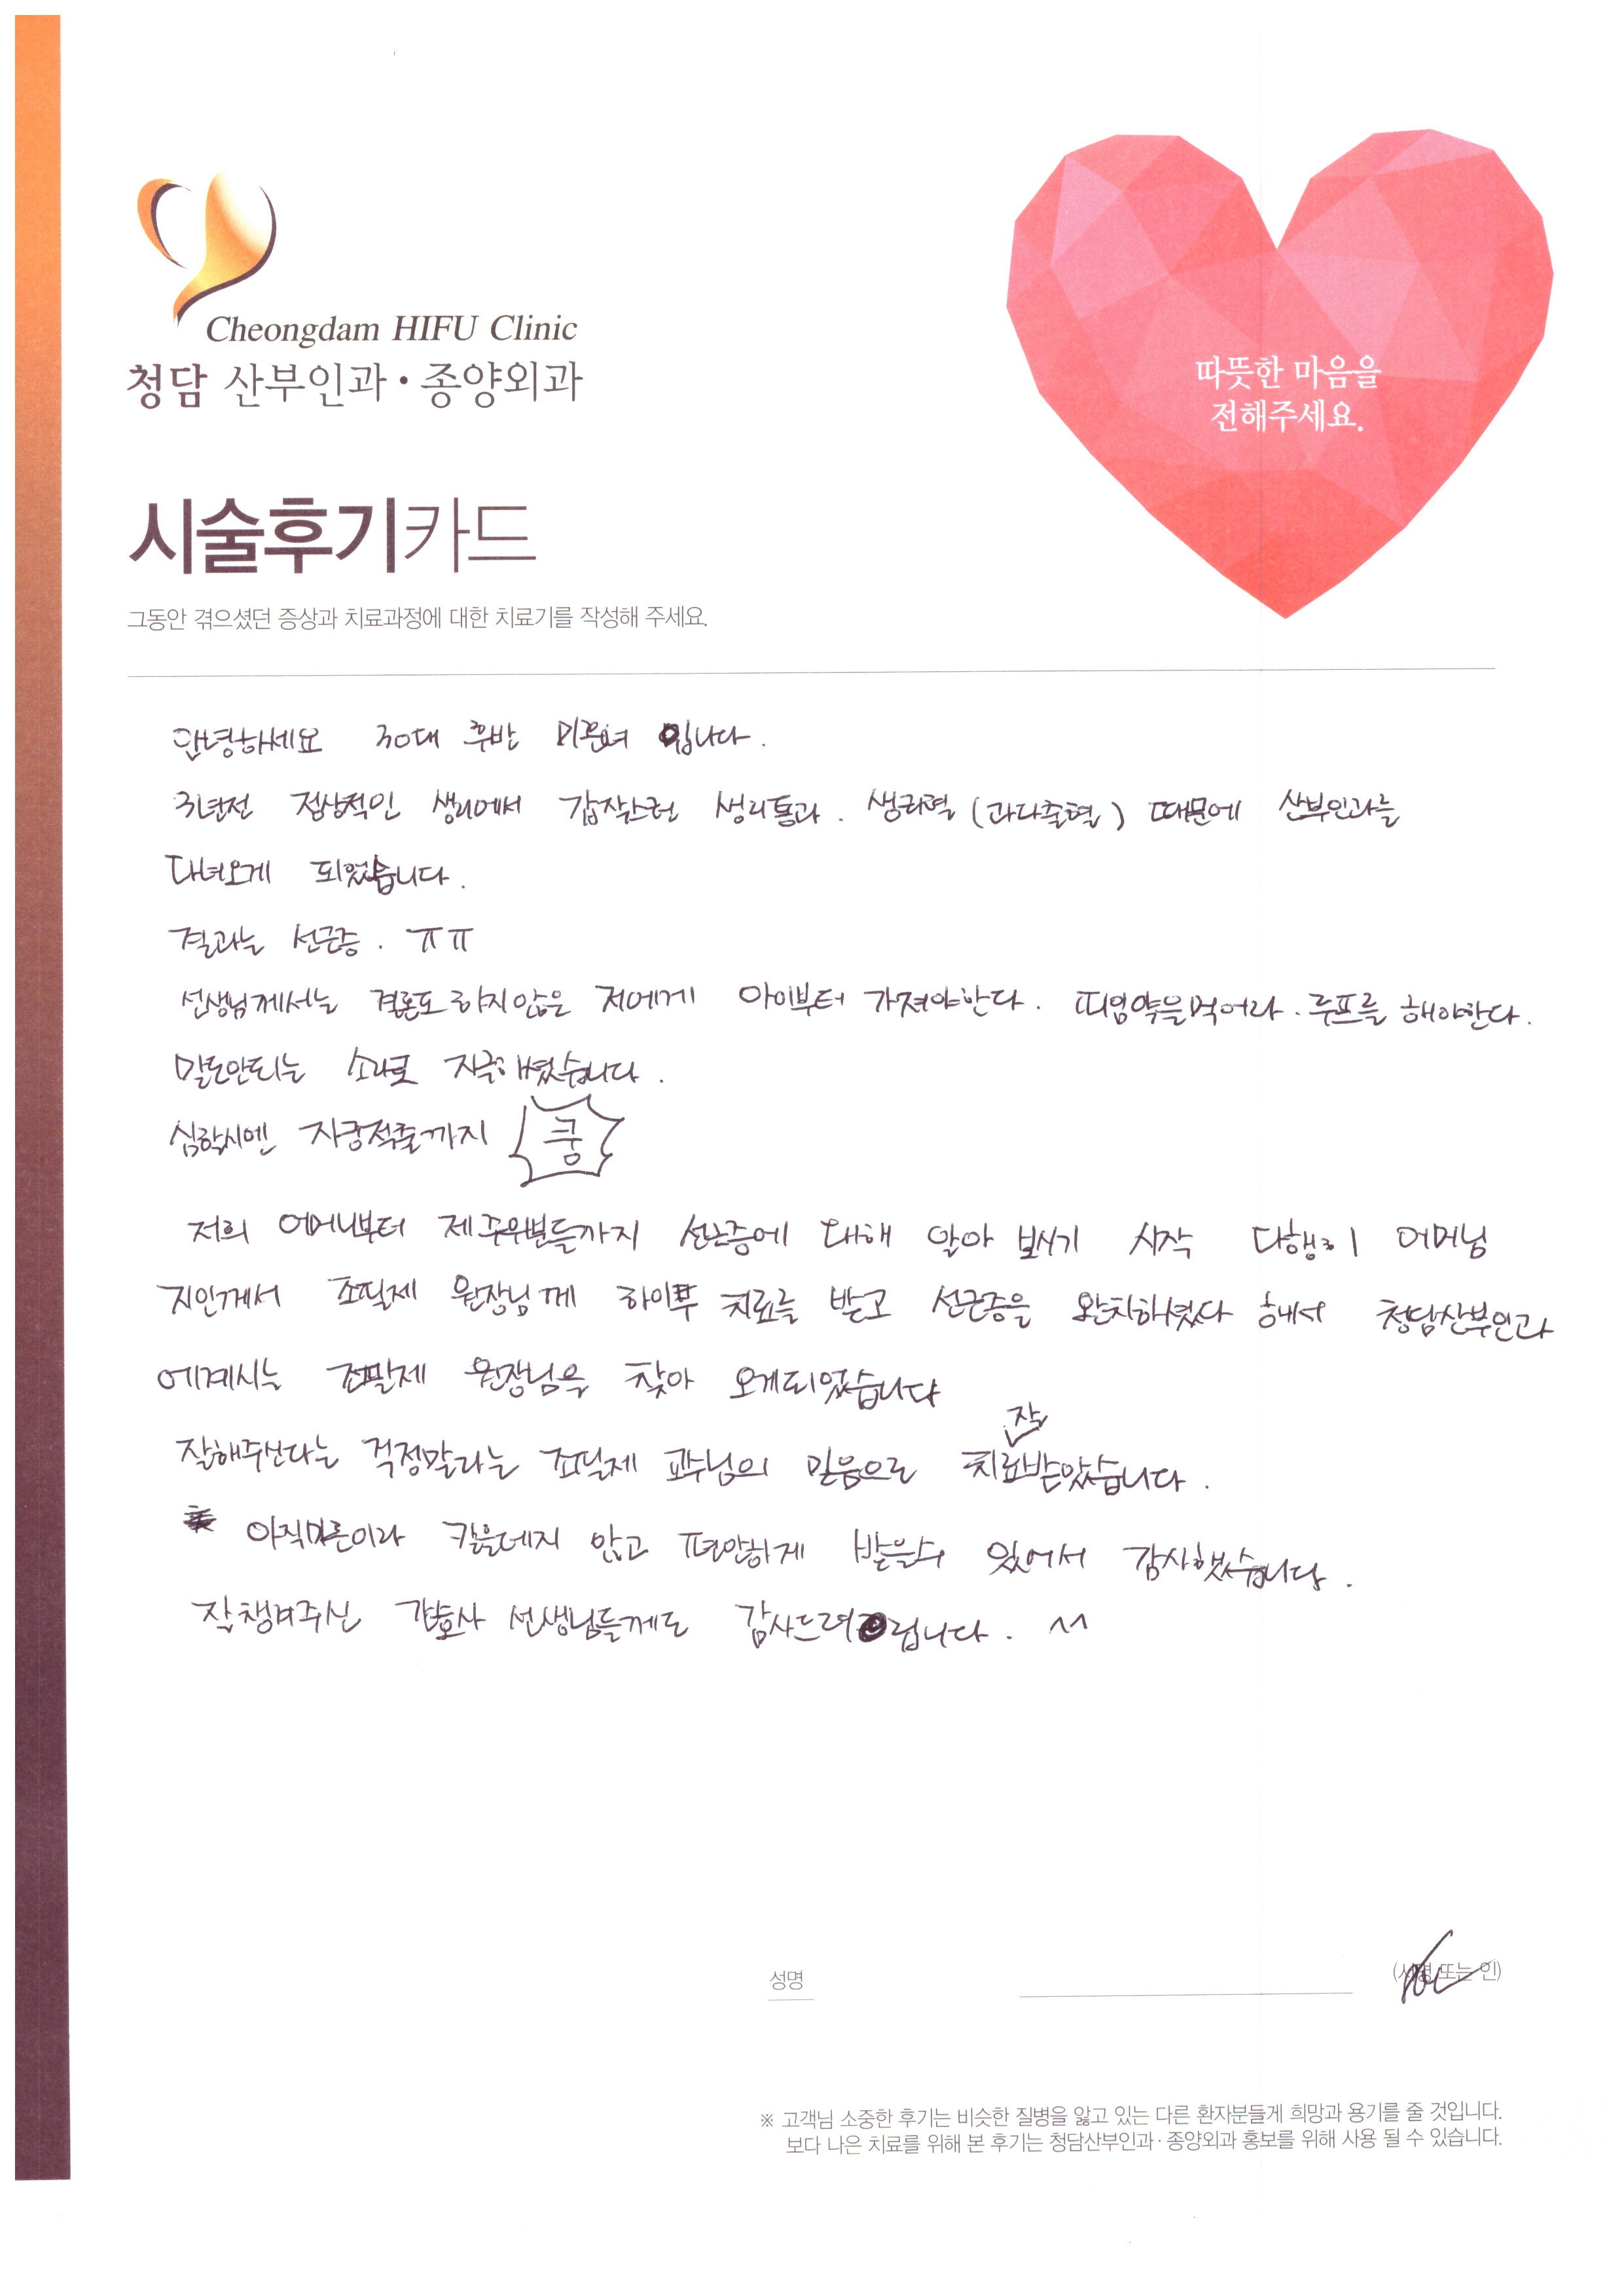 Cheongdam HIFU Clinic
청담 산부인과·종양외과
따뜻한 마음을
전해주세요.
시술후기카드
그동안 겪으셨던 증상과 치료과정에 대한 치료기를 작성해 주세요.
안녕하세요 30대 후반 미혼녀 입니다.
3년전 정상적인 생리에서 갑작스런 생리통과. 생리혈 (과다출혈) 때문에 산부인과를
다녀오게 되었습니다.
결과는 선근증. ㅠㅠ
선생님께서는 결혼도 하지않은 저에게 아이부터 가져야한다. 피임약을먹어라. 루프를 해야한다.
말도안되는 소리로 지금해셨습니다.
심할시엔 자궁적출까지 쿵
저희 어머니부터 제주위분들까지 선근증에 대해 알아 보시기 시작 다행히 어머님
지인께서 조필제 원장님께 하이푸 치료를 받고 선근증을 완치하셨다 해서 청담산부인과
에계시는 조필제 원장님을 찾아 오게되었습니다
잘해주신다는 걱정말라는 조필제 교수님의 믿음으로 잘 치료받았습니다.
아직미혼이라 칼을데지 않고 편안하게 받을수 있어서 감사했습니다.
잘챙겨주신 간호사 선생님들께도 감사드려립니다. ^^
성명 (서명 또는 인)
※ 고객님 소중한 후기는 비슷한 질병을 앓고 있는 다른 환자분들게 희망과 용기를 줄 것입니다.
보다 나은 치료를 위해 본 후기는 청담산부인과·종양외과 홍보를 위해 사용 될 수 있습니다.